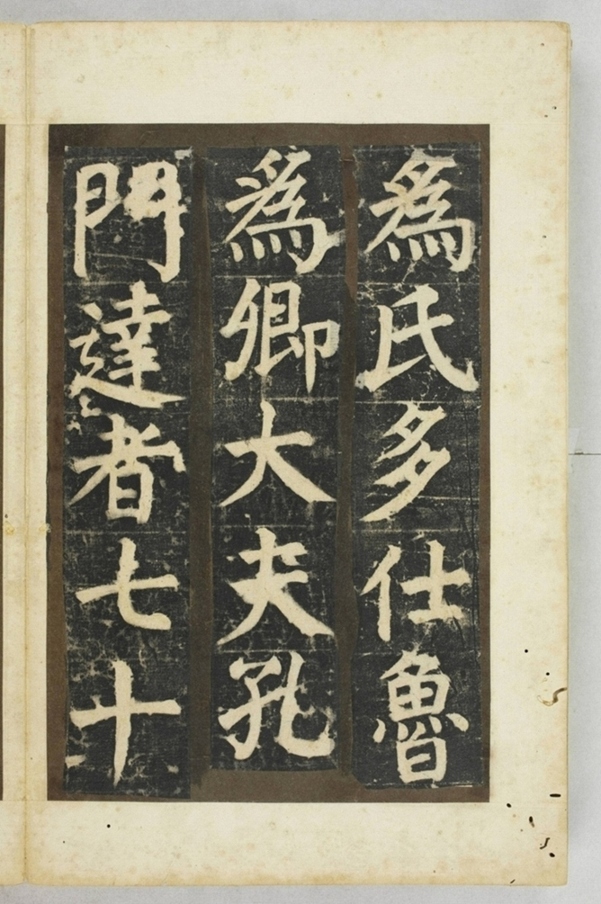 為氏多仕魯
為卿大夫孔
門達者七十